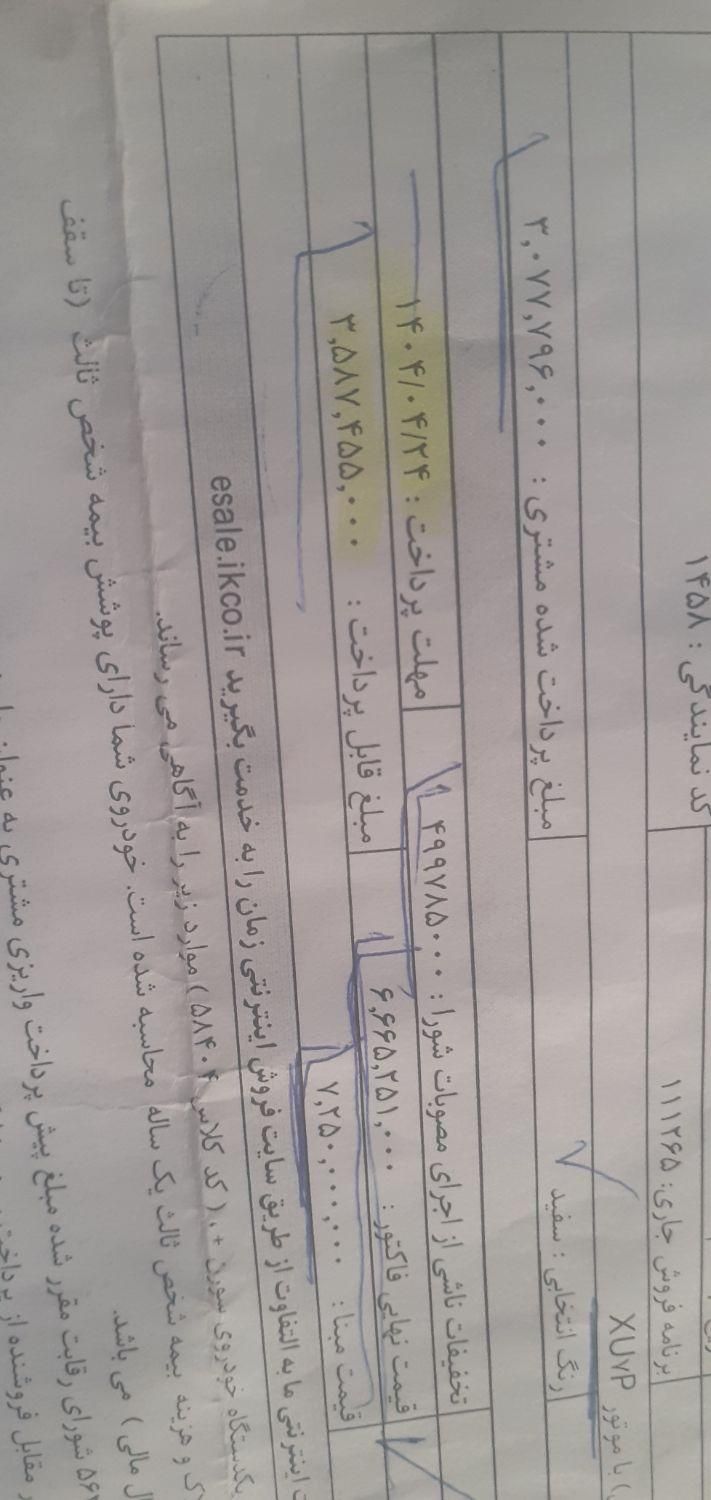 کد نمایندگی : ۱۴۵۸
برنامه فروش جاری: ۱۱۱۲۶۵
با موتور XU۷P
رنگ انتخابی : سفید
مبلغ پرداخت شده مشتری : ۳,۰۷۷,۷۹۶,۰۰۰
تخفیفات ناشی از اجرای مصوبات شورا : ۴۹۹۷۸۵۰۰۰
مهلت پرداخت : ۱۴۰۴/۰۴/۲۴
قیمت نهایی فاکتور : ۶,۶۶۵,۲۵۱,۰۰۰
مبلغ قابل پرداخت : ۳,۵۸۷,۴۵۵,۰۰۰
قیمت مبنا : ۷,۲۵۰,۰۰۰,۰۰۰
اینترنتی ما به التفاوت از طریق سایت فروش اینترنتی زمان را به خدمت بگیرید esale.ikco.ir
یکدستگاه خودروی سورن +، ( کد کلاس ۵۸۴۰۴ ) موارد زیر را به آگاهی می رساند.
و هزینه بیمه شخص ثالث یک ساله محاسبه شده است. خودروی شما دارای پوشش بیمه شخص ثالث (تا سقف
مالی ) می باشد.
شورای رقابت مقرر شده مبلغ پیش پرداخت واریزی مشتری به عنوان
مقابل فروشنده از پرداخت